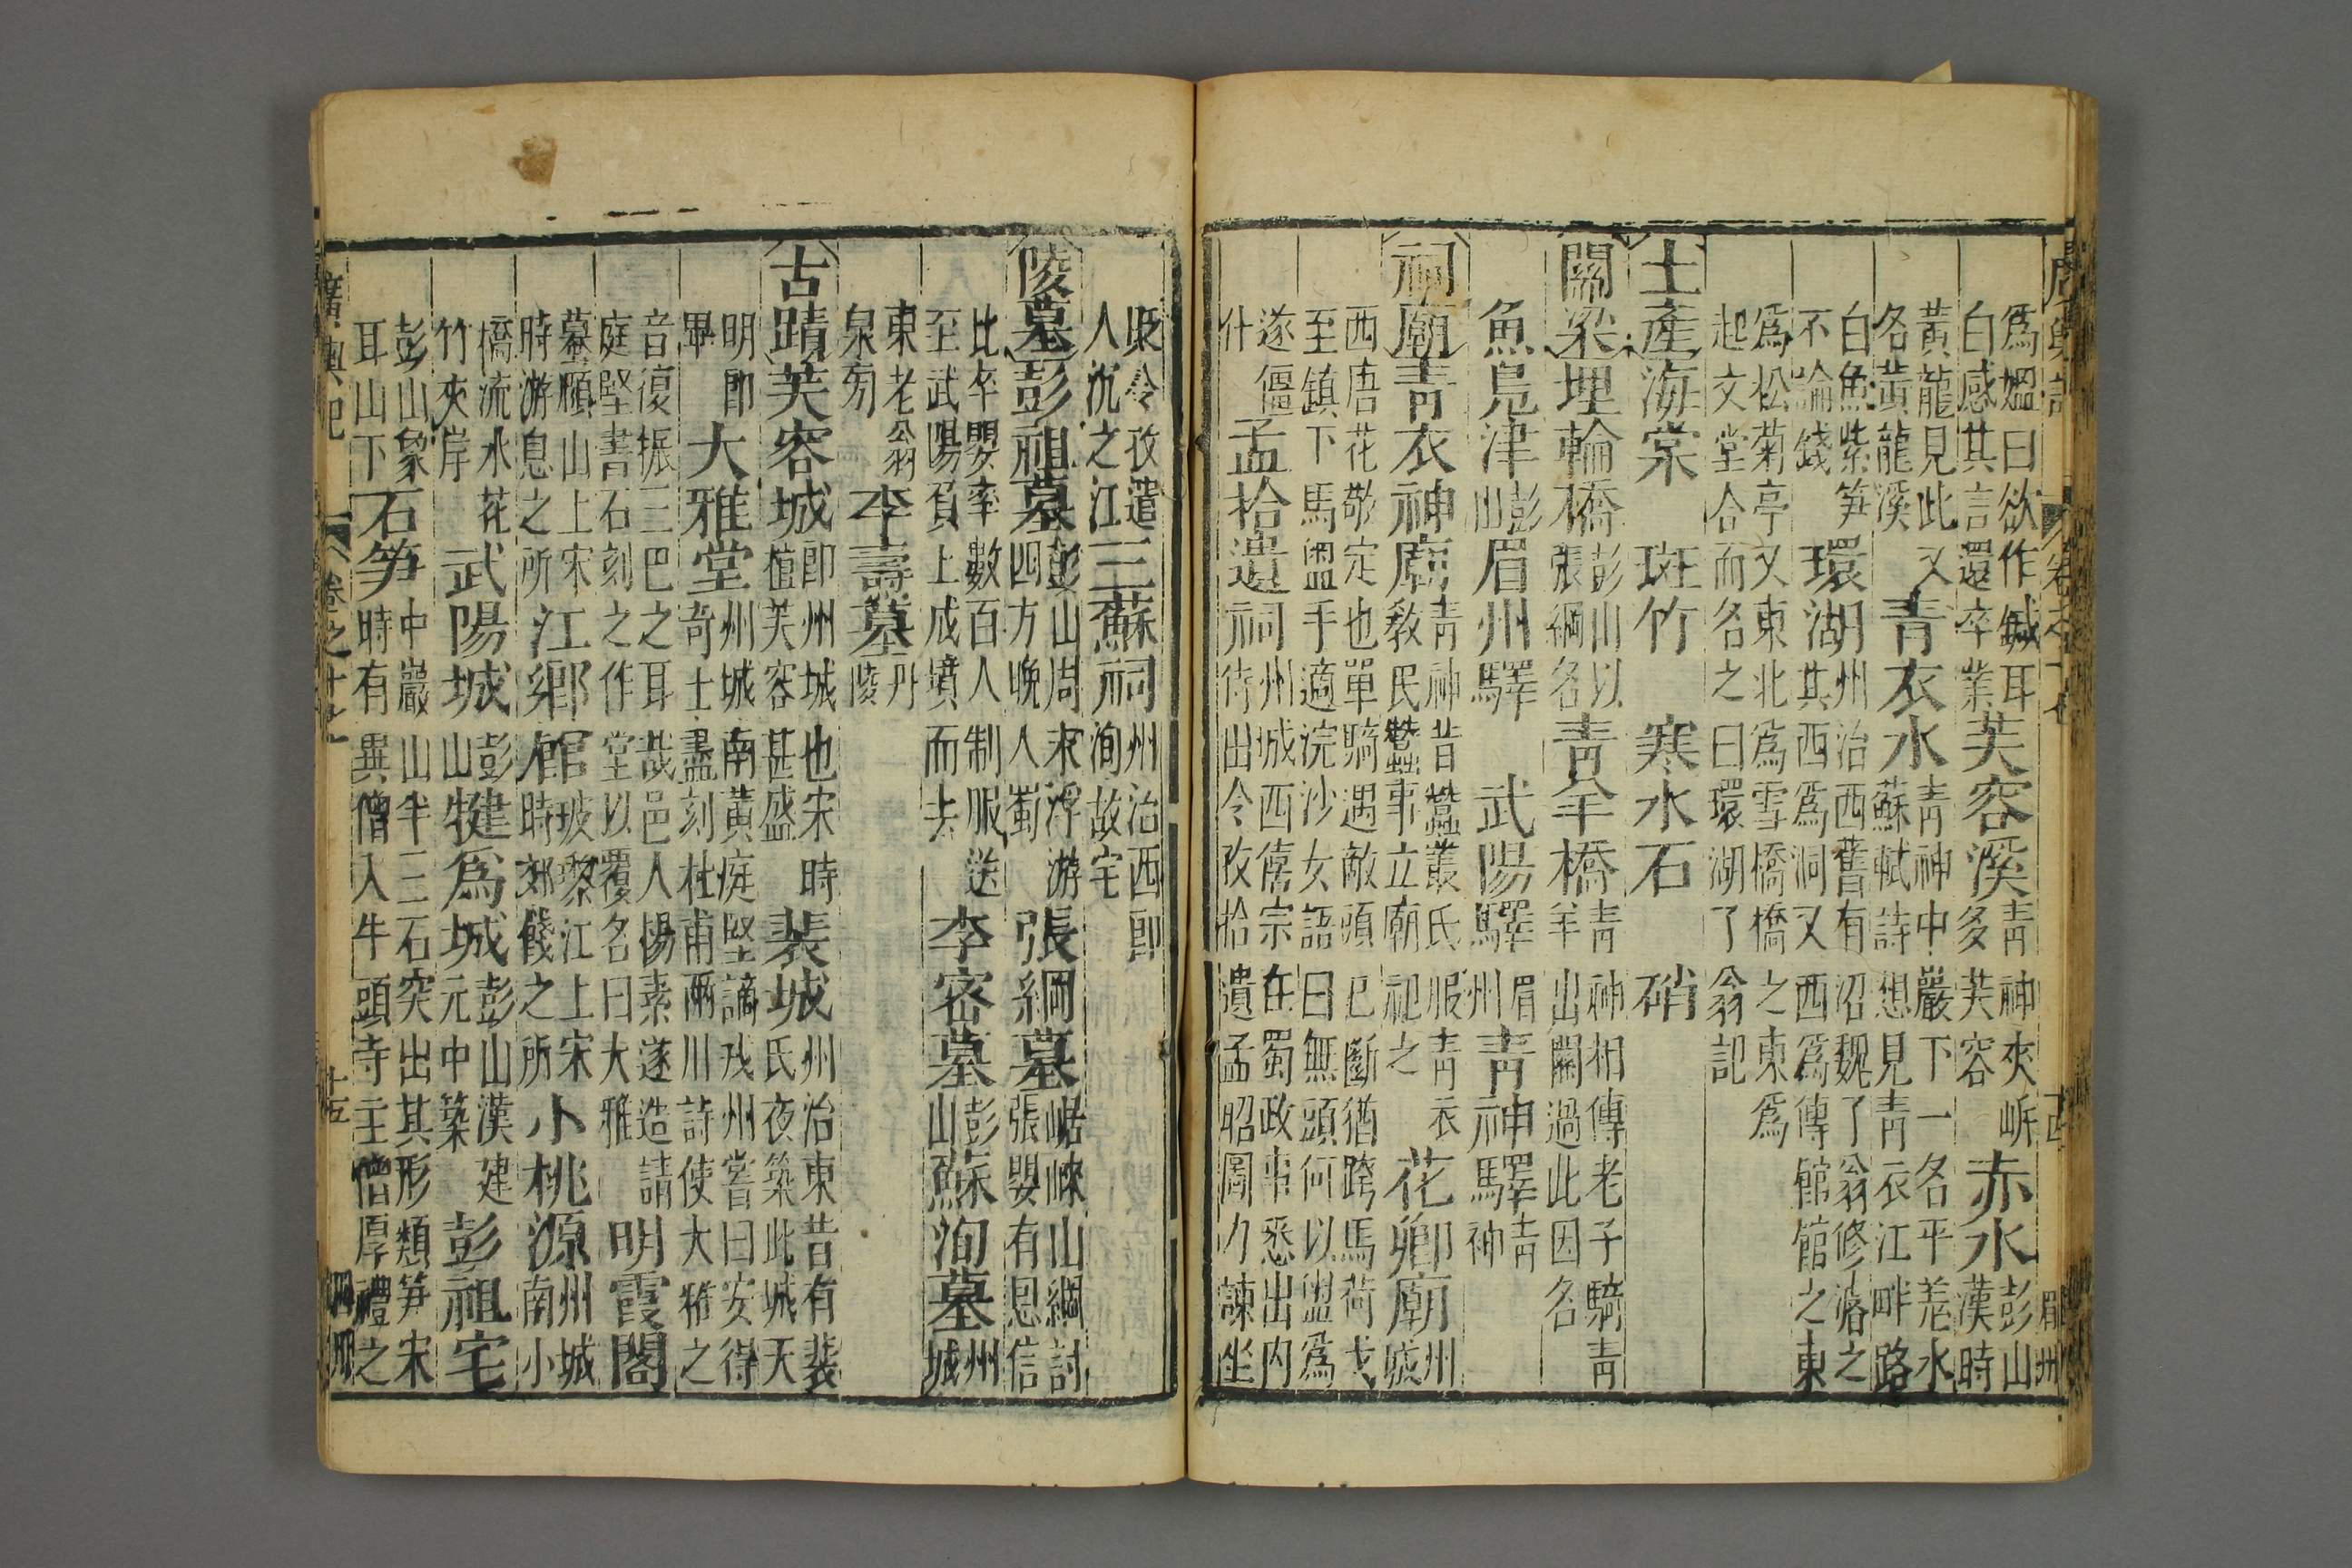 廣輿記　卷之十七　眉州
爲媼曰欲作鍼耳白感其言還卒業芙容溪青神夾岸多芙容赤水彭山漢時
黃龍見此又名黃龍溪青衣水青神中巖下一名平羌水蘇軾詩想見青衣江畔路
白魚紫笋不論錢環湖州治西舊有沼魏了翁修濬之其西爲洞又西爲傳館館之東
爲松菊亭又東北爲雪橋橋之東爲起文堂合而名之曰環湖了翁記
土產海棠　斑竹　寒水石　硝
關梁埋輪橋彭山以張綱名青羊橋青神相傳老子騎青羊出關過此因名
魚鳧津彭山眉州驛　武陽驛眉州青神驛青神
祠廟青衣神廟青神昔蠶叢氏服青衣教民蠶事立廟祀之花卿廟州城
西唐花敬定也單騎遇敵頭已斷猶跨馬荷戈至鎮下馬盥手適浣沙女語曰無頭何以盥爲
遂僵什孟拾遺祠州城西僖宗在蜀政事悉出内侍出令孜拾遺孟昭圖力諫坐
貶令孜遣人沉之江三蘇祠州治西卽洵故宅
陵墓彭祖墓彭山周末浮游四方晚入蜀張綱墓崌崍山綱討張嬰有恩信
比卒嬰率數百人制服送至武陽負土成墳而去李密墓彭山蘇洵墓州城
東老翁泉旁李壽墓丹陵
古蹟芙容城卽州城也宋時植芙容甚盛裴城州治東昔有裴氏夜築此城天
明卽畢大雅堂州城南黃庭堅謫戎州嘗曰安得奇士盡刻杜甫兩川詩使大雅之
音復振三巴之耳哉邑人楊素遂造請庭堅書石刻之作堂以覆名曰大雅明霞閣
蟇頤山上宋時游息之所江鄉館玻瓈江上宋時郊餞之所小桃源州城南小
橋流水花竹夾岸武陽城彭山犍爲城彭山漢建元中築彭祖宅
彭山象耳山下石笋中巖山半三石突出其形類笋宋時有異僧入牛頭寺主僧厚禮之
廣輿記　卷之十七　十五